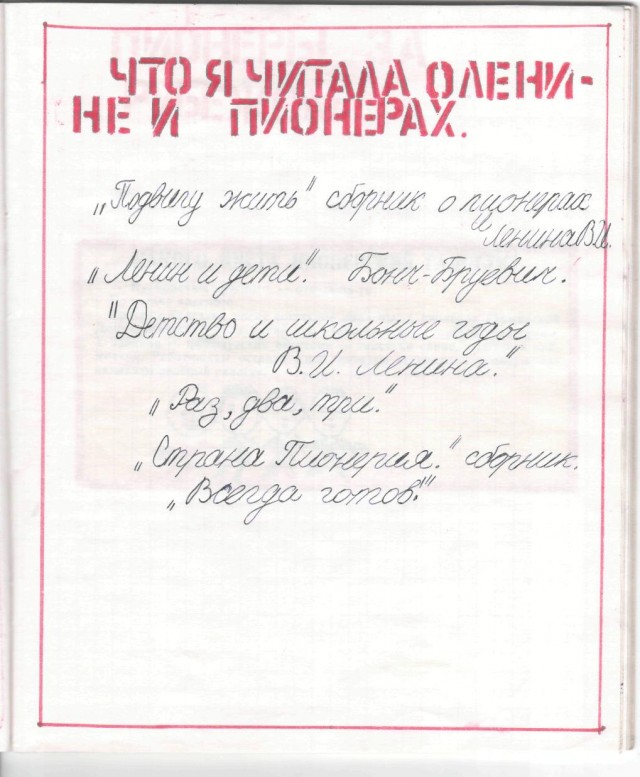 ЧТО Я ЧИТАЛА О ЛЕНИ-
НЕ И ПИОНЕРАХ.
„Подвигу жить" сборник о пионерах
и Ленина В.И.
„Ленин и дети". Бонч-Бруевич.
"Детство и школьные годы
В.И. Ленина."
„Раз, два, три."
„Страна Пионерия." сборник.
„Всегда готов!"